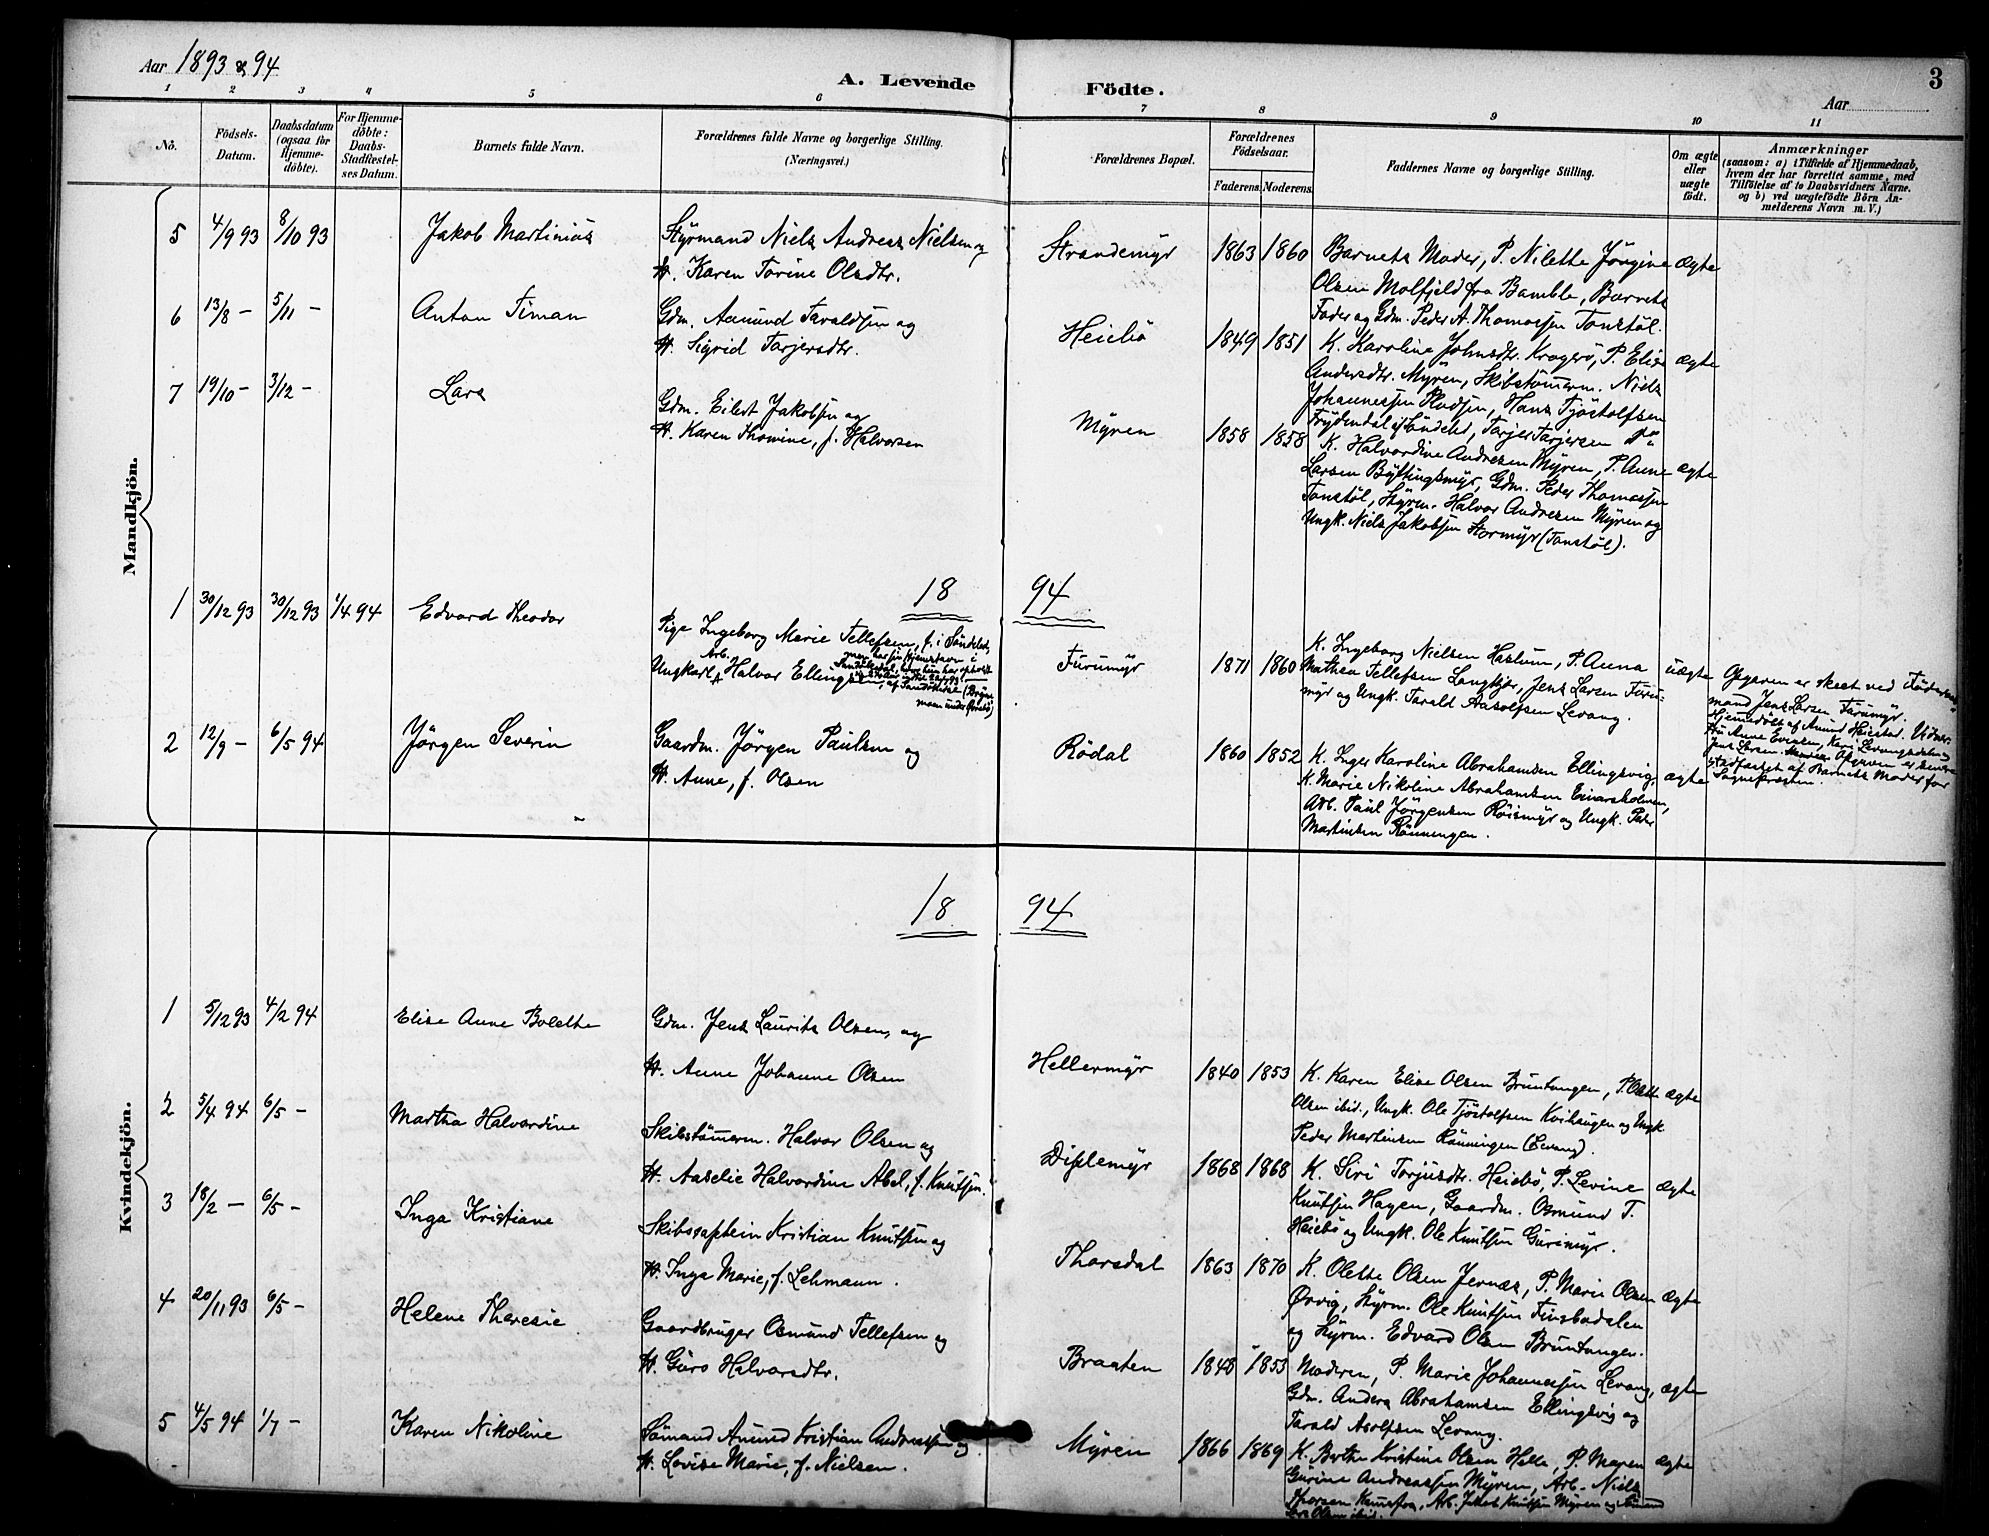 Aar 1893 & 94
A. Levende Födte.
Aar
3
1 2 3 4 5 6 7 8 9 10 11
No.
Födsels-Datum.
Daabsdatum (ogsaa for Hjemme-döbte).
For Hjemme-döbte: Daabs-Stadfæstel-ses Datum.
Barnets fulde Navn.
Forældrenes fulde Navne og borgerlige Stilling.
(Næringsvei.)
Forældrenes Bopæl.
Forældrenes Födselsaar.
Faderens. Moderens.
Faddernes Navne og borgerlige Stilling.
Om ægte eller uægte födt.
Anmærkninger
(saasom: a) i Tilfælde af Hjemmedaab,
hvem der har forrettet samme, med
Tilföielse af to Daabsvidners Navne.
og b) ved uægtefödte Börn An-
melderens Navn m. V.)
Mandkjön.
5 4/9 93 8/10 93 Jakob Martinius
Styrmand Niels Andreas Nielsen og
H. Karen Torine Olsdtr.
Strandemyr 1863 1860
Barnets Moder, P. Nilette Jörgine
Olsen Molfjeld fra Bamble, Barnets
Fader og Gdm. Peder A. Thomassen Tonstöl.
ægte
6 13/8 – 5/11 – Anton Timan
Gdm. Aamund Taraldsen og
H. Sigrid Tarjersdtr.
Heiebö 1849 1851
K. Karoline Johnsdtr. Kragerö, P. Elise
Andersdtr. Myren, Skibstömerm. Niels
Johannessen Pladsen, Hans Tjöstolfsen
Frydendal i Söndeled, Tarjer Tarjersen
ægte
7 19/10 – 3/12 – Lars
Gdm. Eilert Jakobsen og
H. Karen Thomine, f. Halvorsen
Myren 1858 1858
K. Halvordine Andresen Myren, P. Anne
Larsen Byttingsmyr, Gdm. Peder Thomassen
Tonstöl, Styrm. Halvor Andresen Myren og
Ungk. Niels Jakobsen Stormyr (Tonstöl).
ægte
18 94
1 30/12 93 30/12 93 1/4 94 Edvard Theodor
Pige Ingeborg Marie Tellefsen, f. i Söndeled,
men har sin Hjemstavn i
Arb.
Ungkarl Halvor Ellingsen, af Sandökedal
Furumyr 1871 1860
K. Ingeborg Nielsen Haslum, P. Anna
Mathea Tellefsen Langkjær, Jens Larsen Furu-
myr og Ungk. Tarald Aasolfsen Levang.
uægte
Opgaven er skeet ved Föder
mand Jens Larsen Furumyr.
Hjemmedöbt af Amund Heiestad. Vidner:
Anne Evensen, Kari Levangsdalen og
Jens Larsen. Opgaven er senere
stadfæstet af Barnets Moder for
Sognepræsten.
2 12/9 – 6/5 94 Jörgen Severin
Gaardm. Jörgen Paulsen og
H. Anne, f. Olsen
Rödal 1860 1852
K. Inger Karoline Abrahamsen Ellingsvig,
K. Marie Nikoline Abrahamsen Einarsholmen,
Arb. Paul Jörgensen Röismyr og Ungk. Peder
Martinsen Rönningen.
ægte
Kvindekjön.
18 94
1 5/12 93 4/2 94 Elise Anne Bolette
Gdm. Jens Laurits Olsen, og
H. Anne Johanne Olsen
Hellermyr 1840 1853
K. Karen Elise Olsen Bruntangen, P.
Olsen ibid., Ungk. Ole Tjöstolfsen Kvihaugen og Ungk.
Peder Martinsen Rönningen (Levang).
ægte
2 5/4 94 6/5 – Martha Halvordine
Skibstömerm. Halvor Olsen og
H. Aaselie Halvordine Abel, f. Knutsen.
Diplemyr 1868 1868
K. Siri Torjusdtr. Heiebö, P. Levine
Knutsen Hagen, Gaardm. Osmund T.
Heiebö og Ungk. Ole Knutsen Gurimyr.
ægte
3 18/2 – 6/5 – Inga Kristiane
Skibscaptein Kristian Knutsen og
H. Inga Marie, f. Lehmann.
Thorsdal 1863 1870
K. Olette Olsen Jernæs, P. Marie Olsen
Ørvig, Styrm. Ole Knutsen Finsbodalen
og Styrm. Edvard Olsen Bruntangen.
ægte
4 20/11 93 6/5 – Helene Theresie
Gaardbruger Osmund Tellefsen og
H. Guro Halvorsdtr.
Braaten 1848 1853
Moderen, P. Marie Johannessen Levang,
Gdm. Anders Abrahamsen Ellingsvig og
Tarald Asolfsen Levang.
ægte
5 4/5 94 1/7 – Karen Nikoline
Sömand Anund Kristian Andreassen og
H. Lovise Marie, f. Nielsen.
Myren 1866 1869
K. Berthe Kristine Olsen Helle, P. Maren
Gurine Andreassen Myren, Arb. Niels
Arb. Jakob Knutsen Myren og
ægte